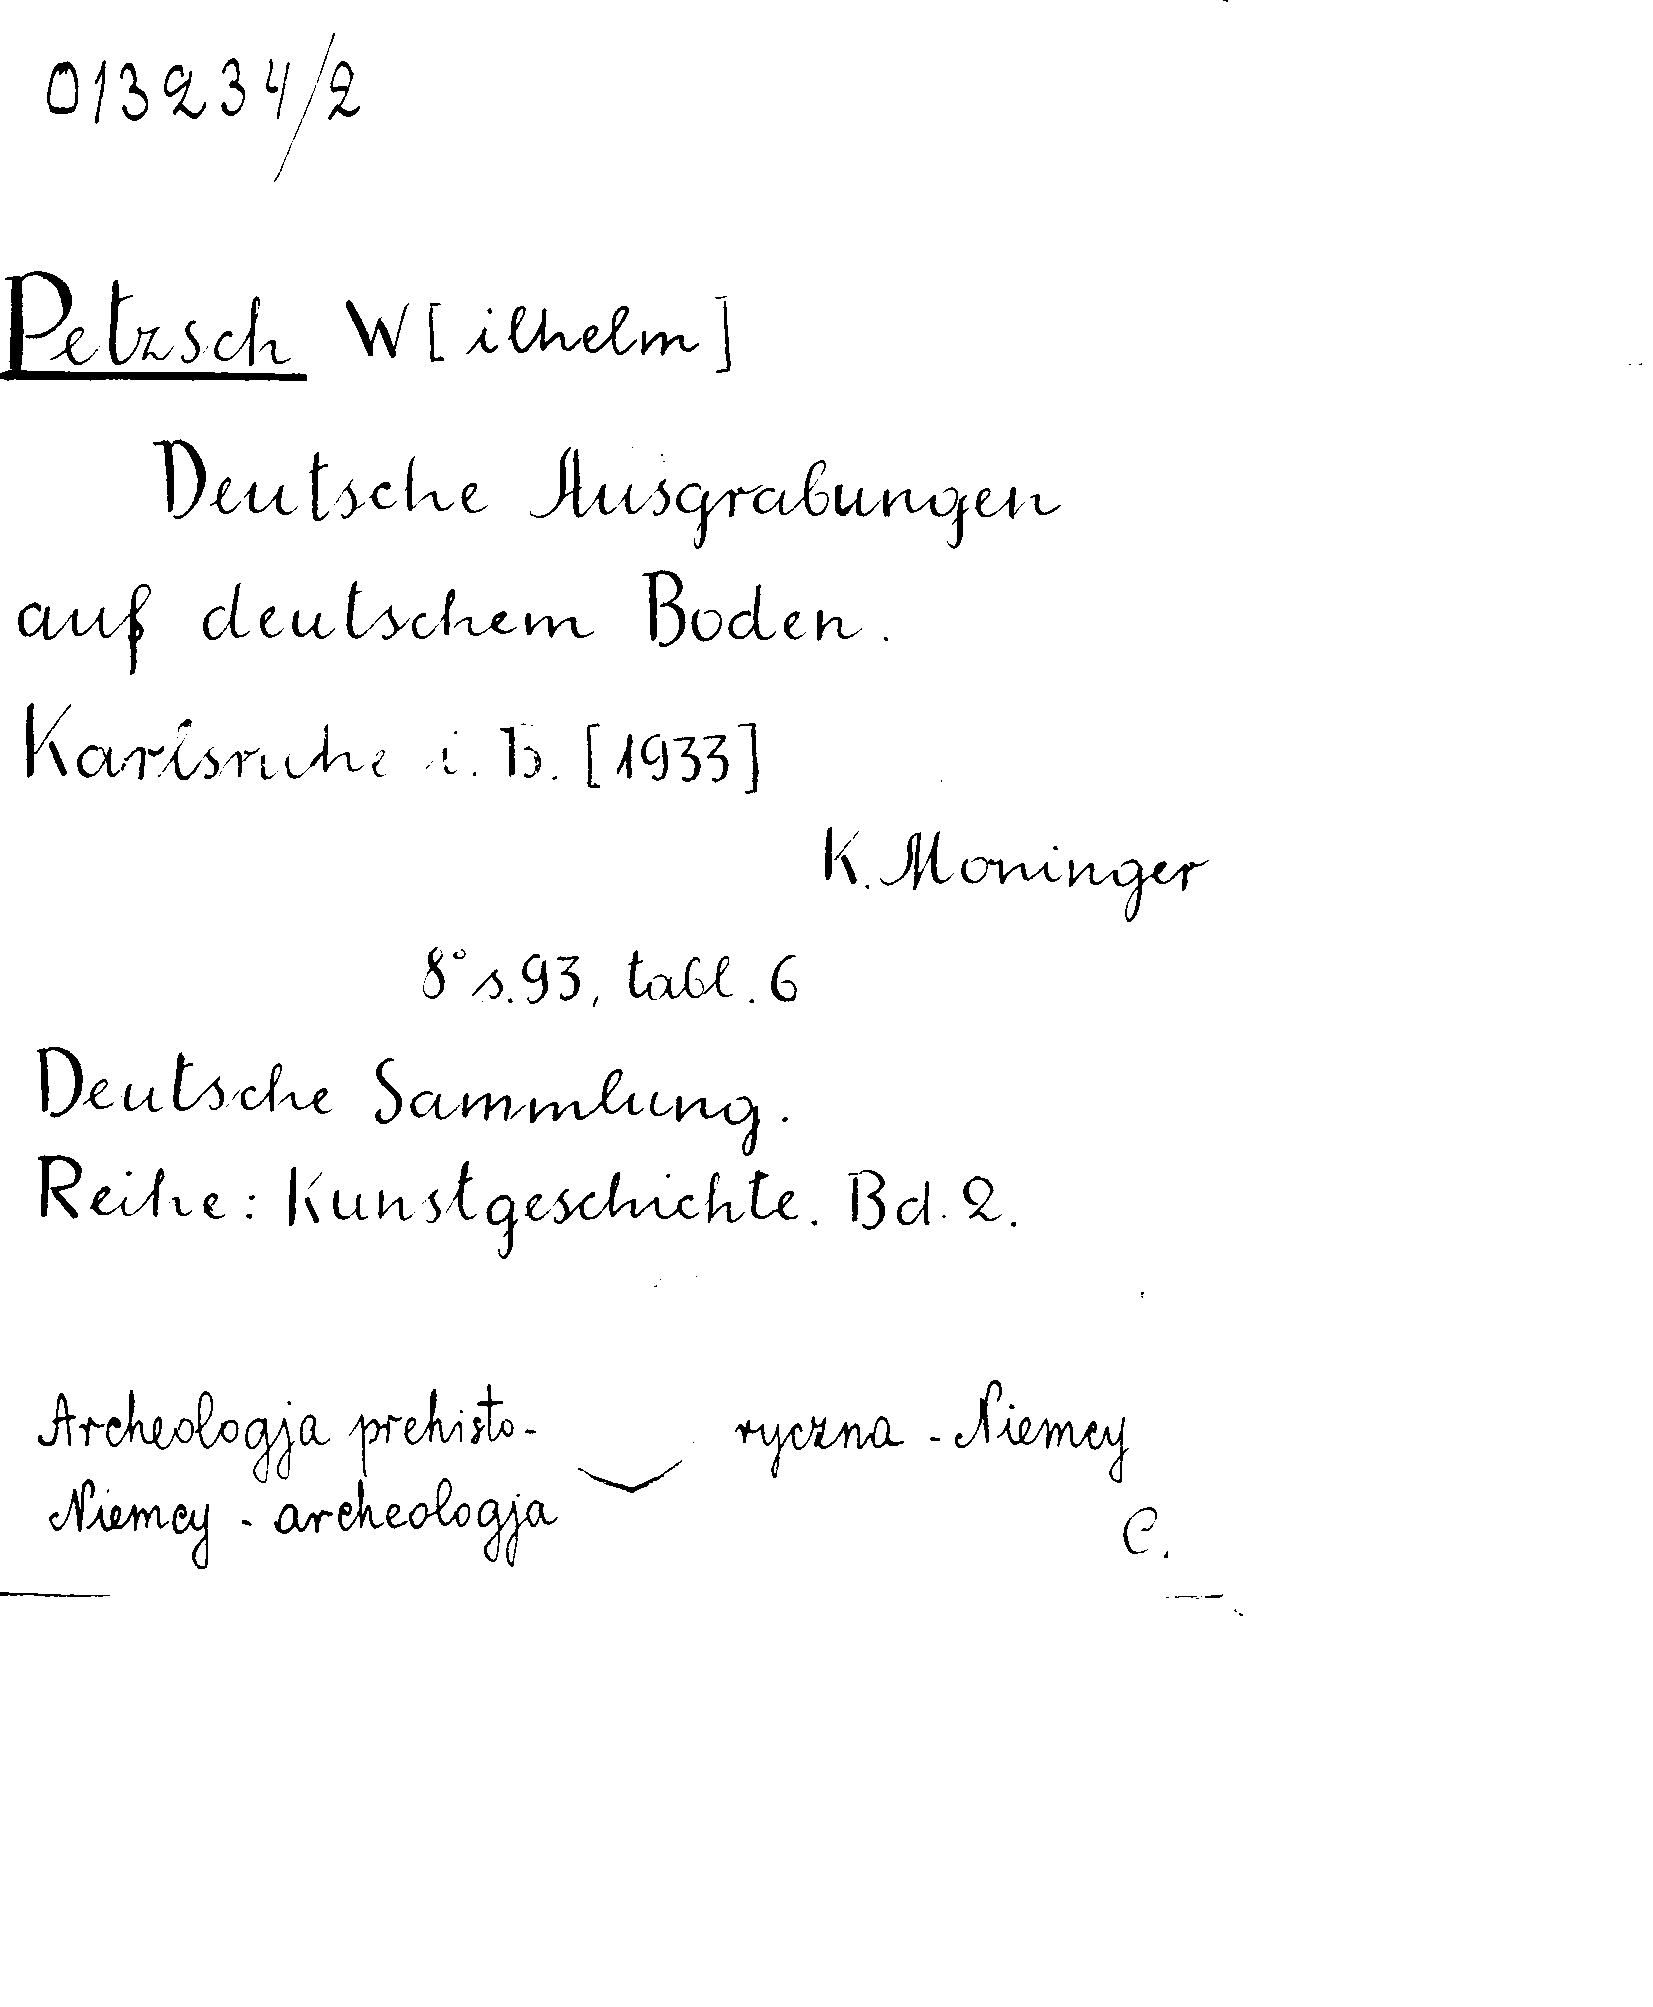 013234/2
Petzsch W[ilhelm]
Deutsche Ausgrabungen
auf deutschem Boden.
Karlsruhe i. B. [1933]
K. Moninger
8° s. 93, tabl. 6
Deutsche Sammlung.
Reihe: Kunstgeschichte. Bd. 2.
Archeologja prehisto- ryczna - Niemcy
Niemcy - archeologja
C.